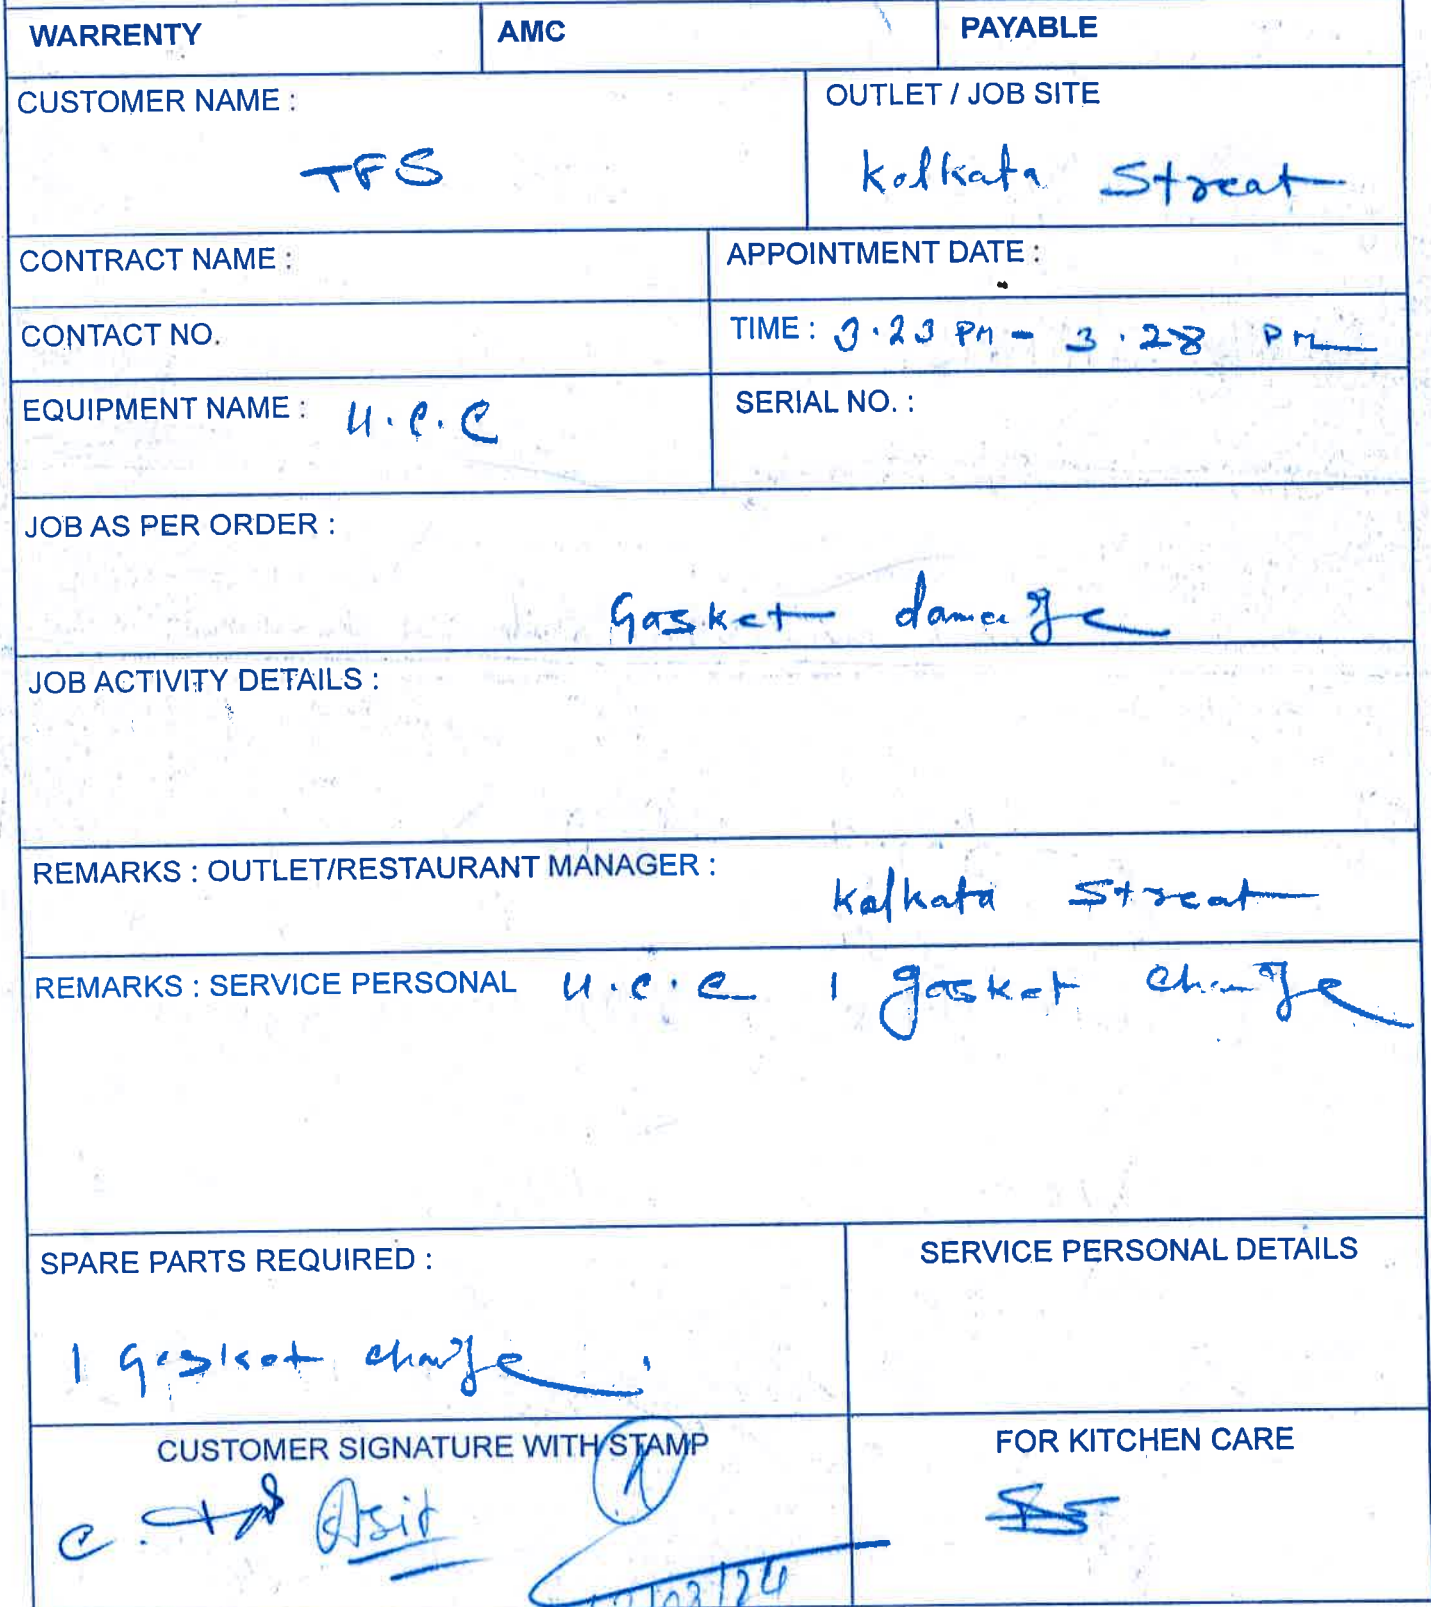 WARRENTY AMC PAYABLE
CUSTOMER NAME : OUTLET / JOB SITE
TFS Kolkata Streat
CONTRACT NAME : APPOINTMENT DATE :
CONTACT NO. TIME : 3.23 PM - 3.28 PM
EQUIPMENT NAME : U.C.C SERIAL NO. :
JOB AS PER ORDER :
Gasket damage
JOB ACTIVITY DETAILS :
REMARKS : OUTLET/RESTAURANT MANAGER :
Kolkata Streat
REMARKS : SERVICE PERSONAL U.C.C 1 gasket change
SPARE PARTS REQUIRED : SERVICE PERSONAL DETAILS
1 Gasket change
CUSTOMER SIGNATURE WITH STAMP FOR KITCHEN CARE
Asit